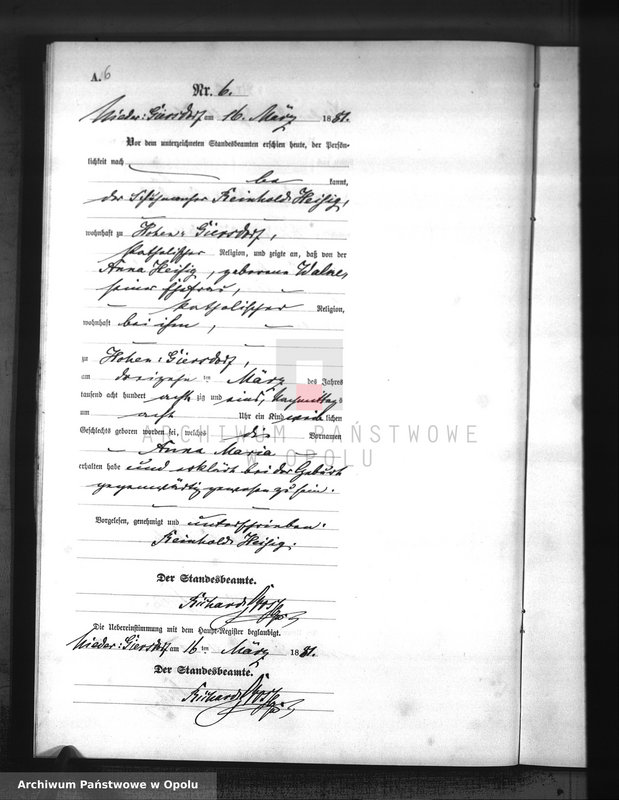 A. 6
Nr. 6.
Nieder-Giersdorf am 16. März 1881.
Vor dem unterzeichneten Standesbeamten erschien heute, der Persön-
lichkeit nach
be kannt,
der Reinhold Heisig,
wohnhaft zu Hohen-Giersdorf,
katholischer Religion, und zeigte an, daß von der
Anna Heisig, geborene
seiner Ehefrau,
katholischer Religion,
wohnhaft bei ihm,
zu Hohen-Giersdorf,
am dreizehnten März des Jahres
tausend acht hundert acht zig und eins, Nachmittags
um acht Uhr ein Kind weib lichen
Geschlechts geboren worden sei, welches die Vornamen
Anna Maria
erhalten habe und erklärt bei der Geburt
gegenwärtig gewesen zu sein.
Vorgelesen, genehmigt und unterschrieben.
Reinhold Heisig.
Der Standesbeamte.
Richard
Die Uebereinstimmung mit dem Haupt-Register beglaubigt.
Nieder-Giersdorf am 16 ten März 1881.
Der Standesbeamte.
Richard
ARCHIWUM PAŃSTWOWE
W OPOLU
Archiwum Państwowe w Opolu